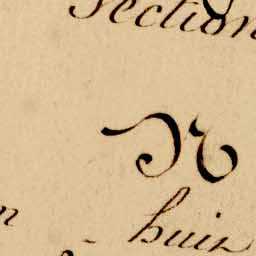 Section
N
n - huit